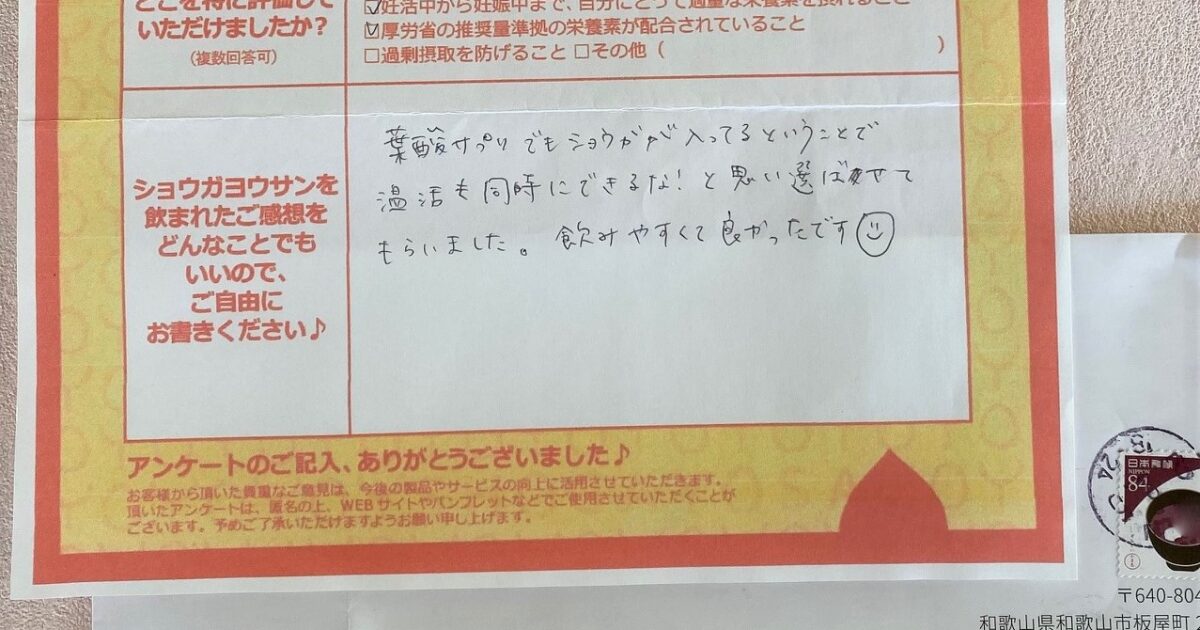 どこを特に評価して
いただけましたか?
(複数回答可)
☑妊活中から妊娠中まで、自分にとって適量な栄養素を摂れること
☑厚労省の推奨量準拠の栄養素が配合されていること
□過剰摂取を防げること □その他 ( )
ショウガヨウサンを
飲まれたご感想を
どんなことでも
いいので、
ご自由に
お書きください♪
葉酸サプリでもショウガが入ってるということで
温活も同時にできるな!と思い選ばせて
もらいました。飲みやすくて良かったです☺
アンケートのご記入、ありがとうございました♪
お客様から頂いた貴重なご意見は、今後の製品やサービスの向上に活用させていただきます。
頂いたアンケートは、匿名の上、WEBサイトやパンフレットなどでご使用させていただくことが
ございます。予めご了承いただけますようお願い申し上げます。
日本郵便
NIPPON
84
〒640-804
和歌山県和歌山市板屋町2